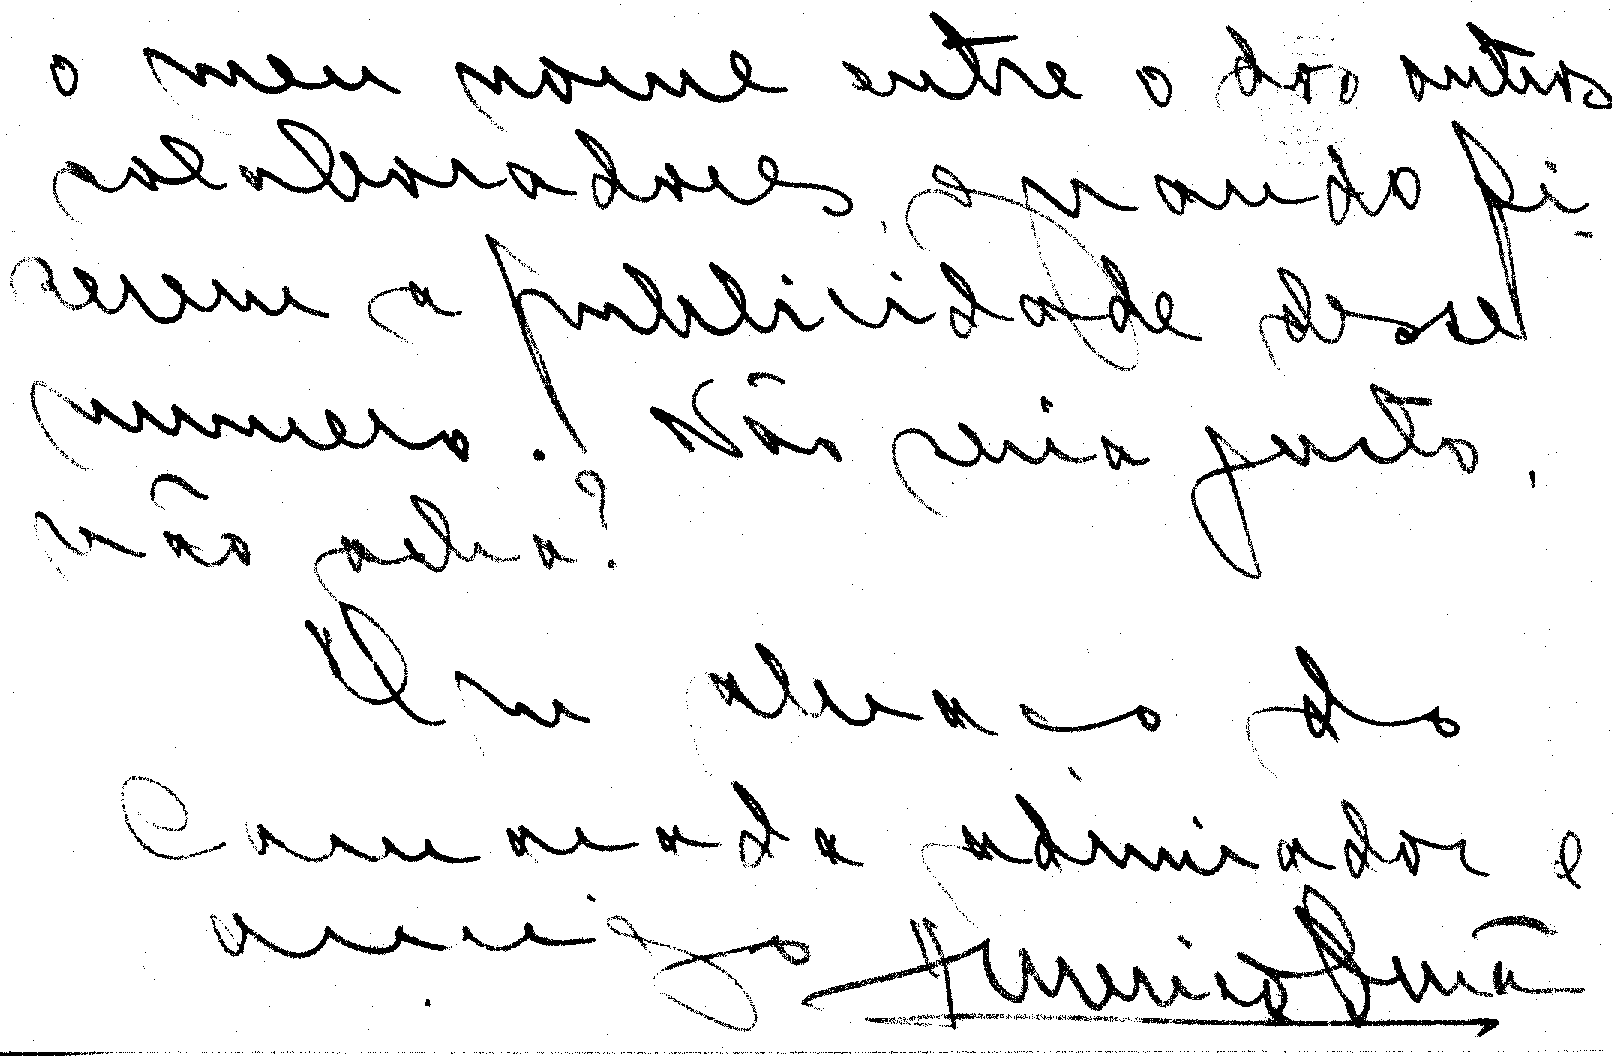 o meu nome entre o dos outros
colaboradores, quando fi-
zerem a publicidade desse
numero. Não seria justo,
não acha?
Um abraço do
Camarada admirador e
amigo